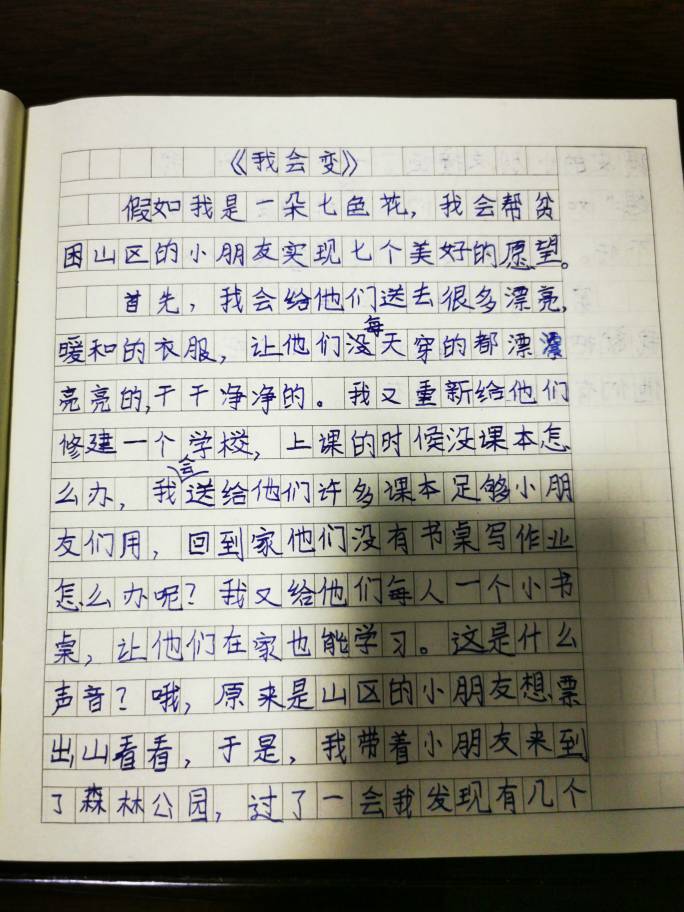 《我会变》
假如我是一朵七色花，我会帮贫
困山区的小朋友实现七个美好的愿望。
首先，我会给他们送去很多漂亮，
暖和的衣服，让他们每天穿的都漂漂
亮亮的，干干净净的。我又重新给他们
修建一个学校，上课的时候没课本怎
么办，我会送给他们许多课本足够小朋
友们用，回到家他们没有书桌写作业
怎么办呢？我又给他们每人一个小书
桌，让他们在家也能学习。这是什么
声音？哦，原来是山区的小朋友想票
出山看看，于是，我带着小朋友来到
了森林公园，过了一会我发现有几个